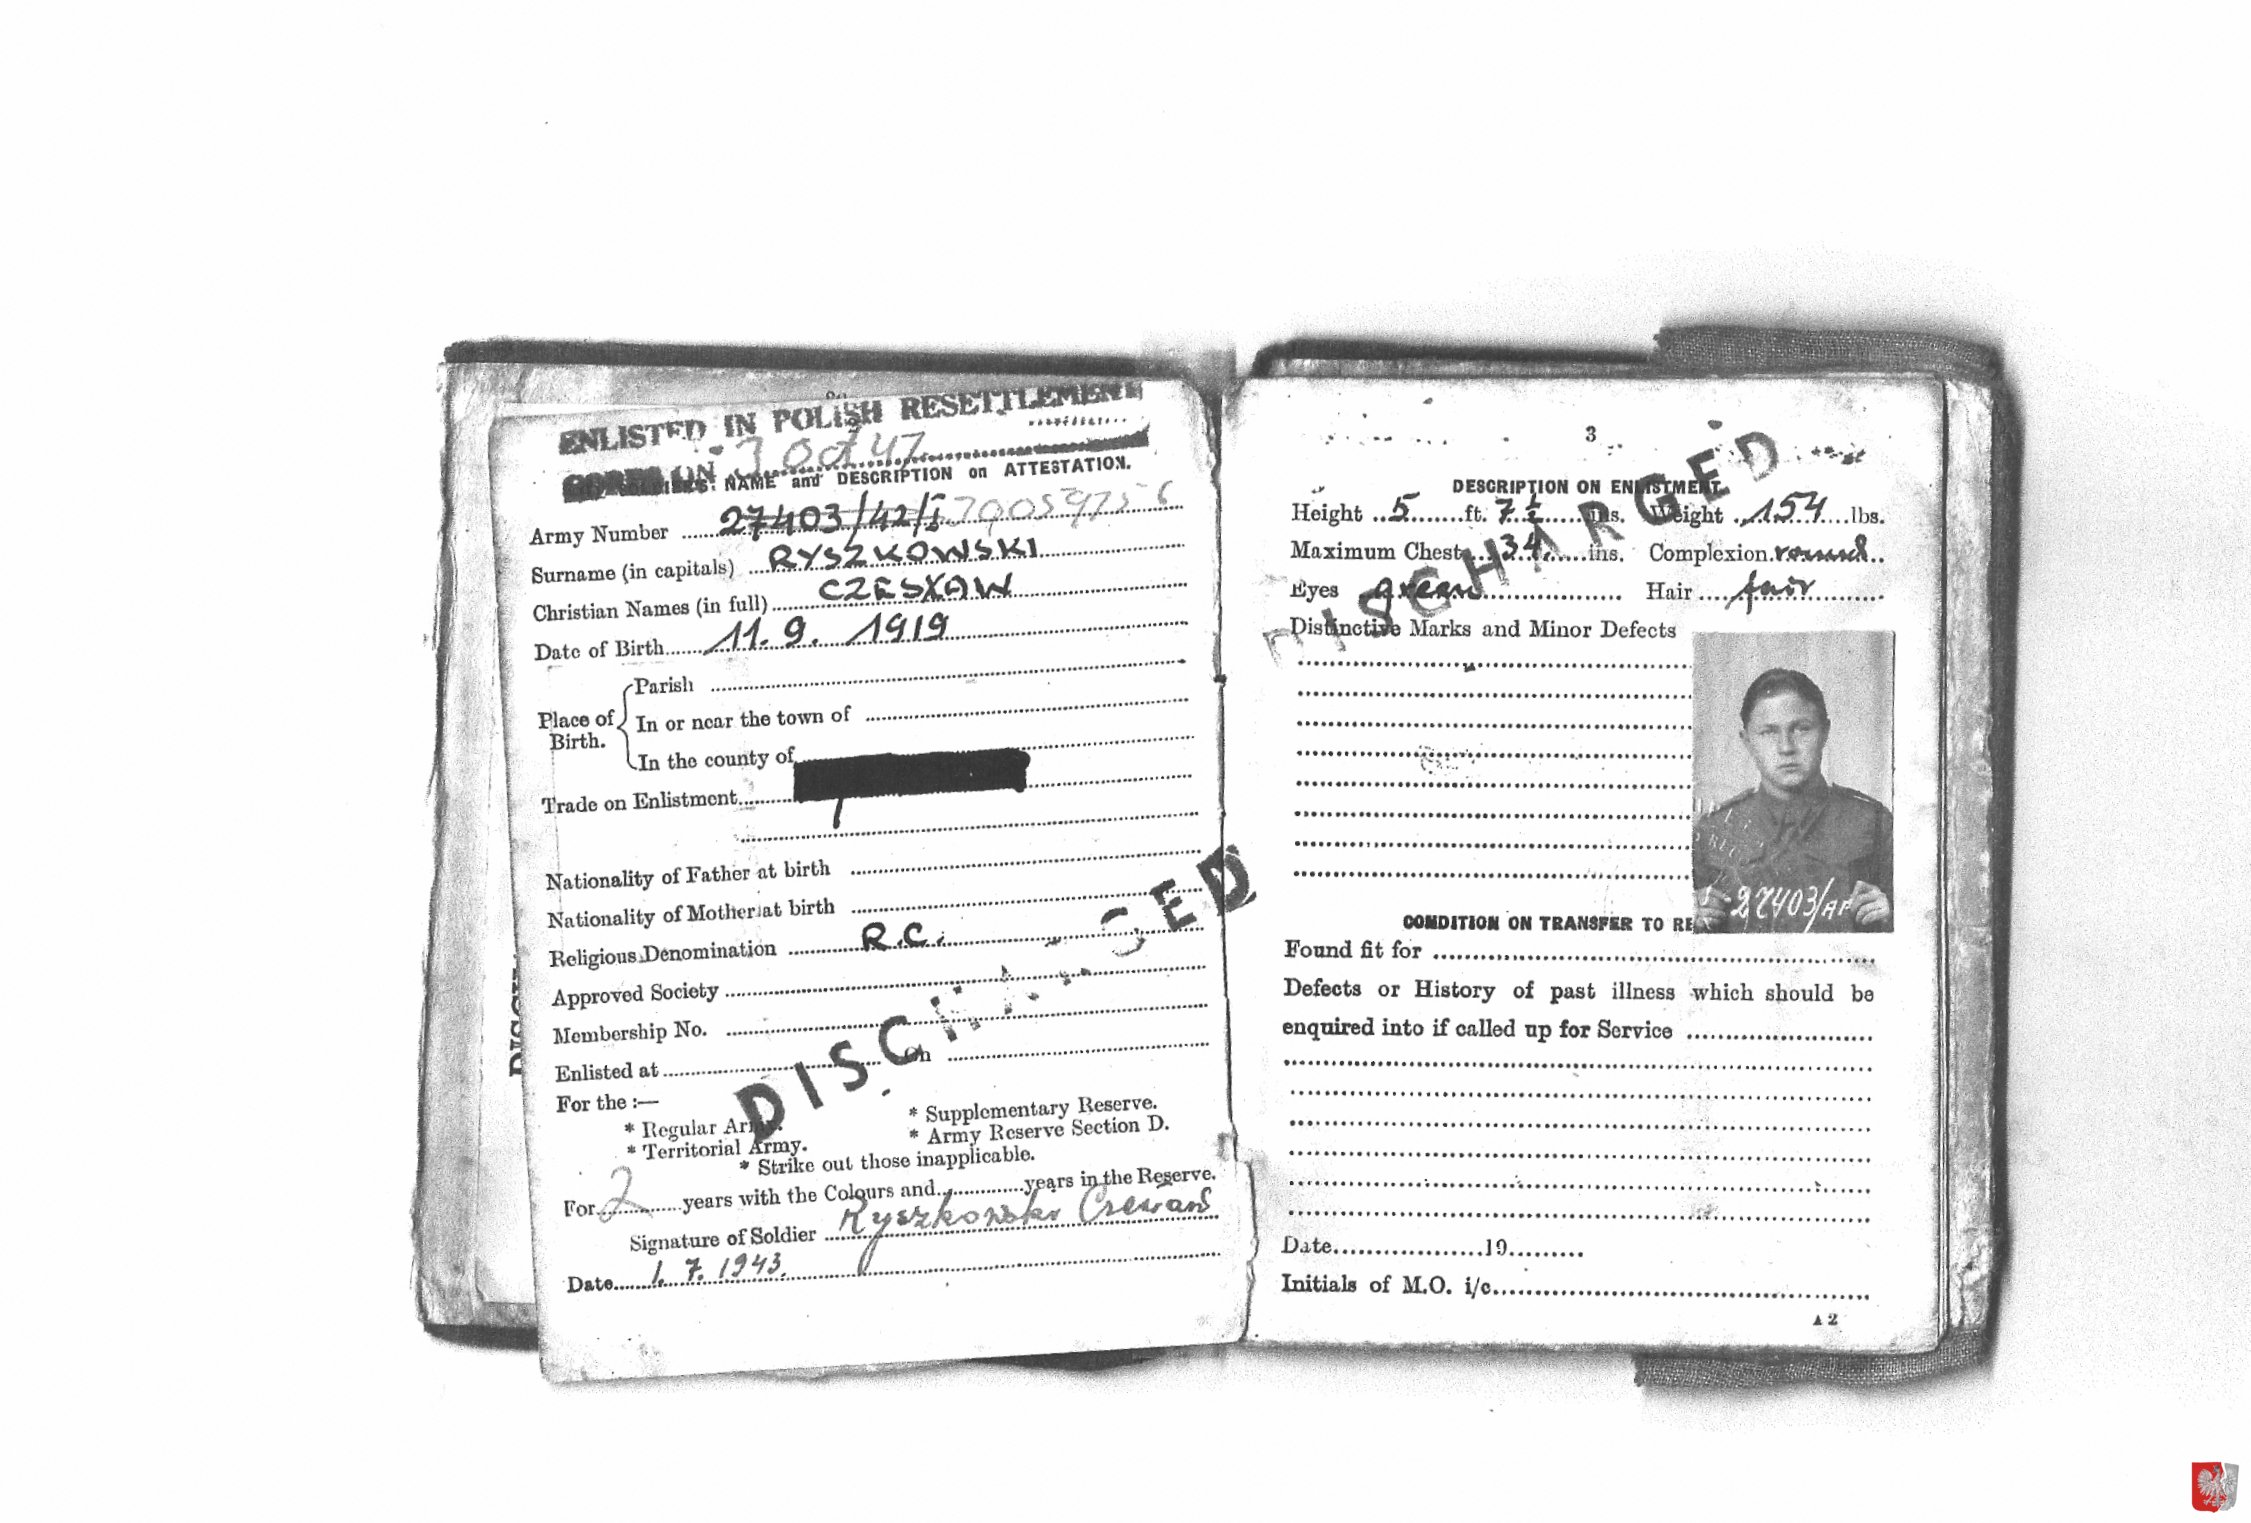 ENLISTED IN POLISH RESETTLEMENT
CORPS ON 3 Oct 47
SOLDIER'S NAME and DESCRIPTION on ATTESTATION.
Army Number 27403/42/I 30059756
Surname (in capitals) RYSZKOWSKI
Christian Names (in full) CZESŁAW
Date of Birth 11. 9. 1919
Place of Birth.
Parish
In or near the town of
In the county of
Trade on Enlistment
Nationality of Father at birth
Nationality of Mother at birth
Religious Denomination R.C.
Approved Society
Membership No.
Enlisted at On
For the :—
* Regular Army. * Supplementary Reserve.
* Territorial Army. * Army Reserve Section D.
* Strike out those inapplicable.
For 2 years with the Colours and years in the Reserve.
Signature of Soldier Ryszkowski Czesław
Date 1. 7. 1943.
DISCHARGED
3
DESCRIPTION ON ENLISTMENT
Height 5 ft. 7 ½ ins. Weight 154 lbs.
Maximum Chest 34 ins. Complexion round
Eyes green Hair fair
Distinctive Marks and Minor Defects
DISCHARGED
27403/
CONDITION ON TRANSFER TO RE
Found fit for
Defects or History of past illness which should be
enquired into if called up for Service
Date 19
Initials of M.O. i/c
A 2